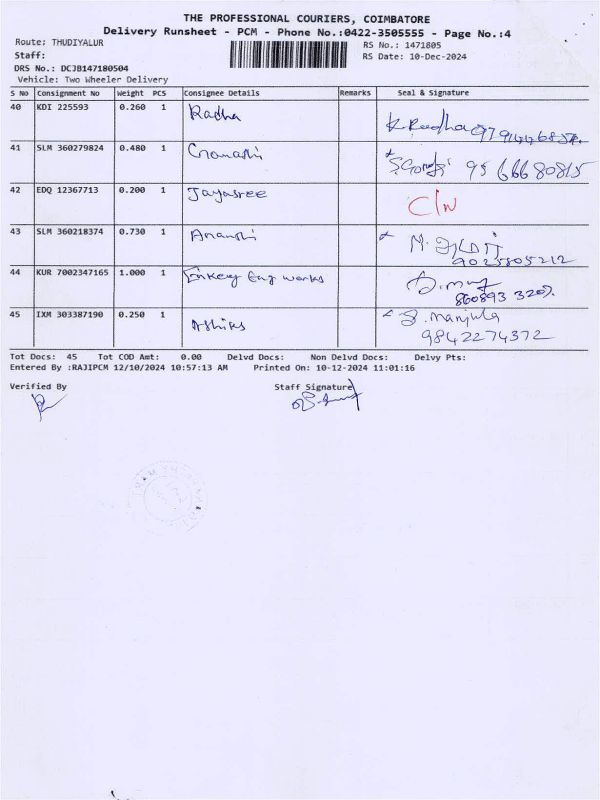 THE PROFESSIONAL COURIERS, COIMBATORE
Delivery Runsheet - PCM - Phone No.:0422-3505555 - Page No.:4
Route: THUDIYALUR RS No.: 1471805
Staff: RS Date: 10-Dec-2024
DRS No.: DCJB147180504
Vehicle: Two Wheeler Delivery
S No Consignment No Weight PCS Consignee Details Remarks Seal & Signature
40 KDI 225593 0.260 1 Radha
K Radha
41 SLM 360279824 0.480 1
95 66680815
42 EDQ 12367713 0.200 1 Jayasree C/N
43 SLM 360218374 0.730 1
9025805212
44 KUR 7002347165 1.000 1 Eng works
45 IXM 303387190 0.250 1 Manjula
9842274372
Tot Docs: 45 Tot COD Amt: 0.00 Delvd Docs: Non Delvd Docs: Delvy Pts:
Entered By :RAJIPCM 12/10/2024 10:57:13 AM Printed On: 10-12-2024 11:01:16
Verified By Staff Signature